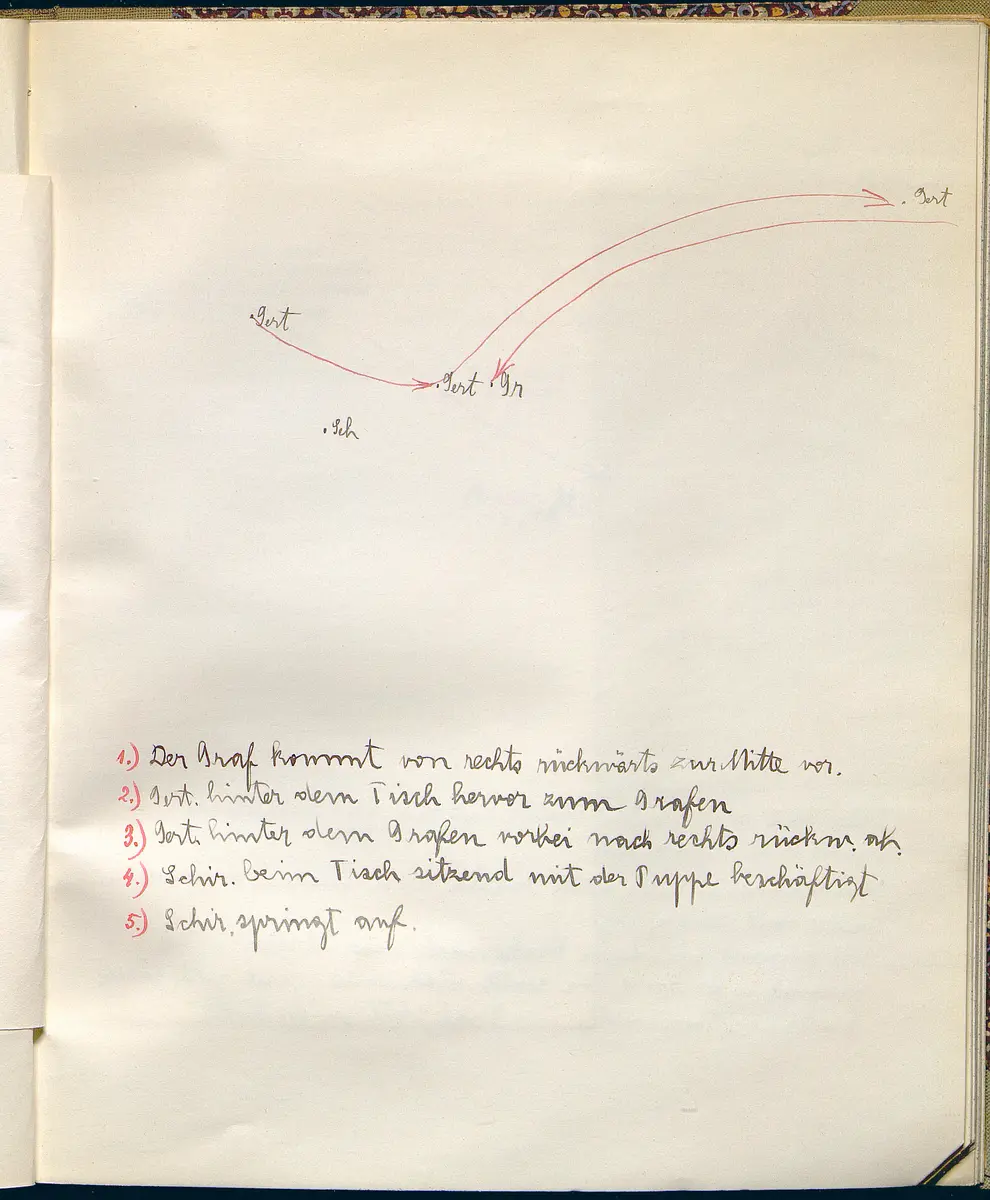 . Gert
. Gert
. Gert . Gr
. Sch
1.) Der Graf kommt von rechts rückwärts zur Mitte vor.
2.) Gert. hinter dem Tisch hervor zum Grafen
3.) Gert. hinter dem Grafen vorbei nach rechts rückw. ab.
4.) Schir. beim Tisch sitzend mit der Puppe beschäftigt
5.) Schir. springt auf.